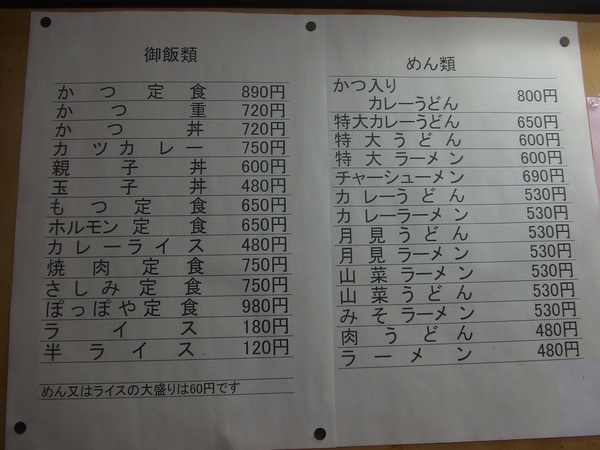 御飯類
かつ定食 890円
かつ重 720円
かつ丼 720円
カツカレー 750円
親子丼 600円
玉子丼 480円
もつ定食 650円
ホルモン定食 650円
カレーライス 480円
焼肉定食 750円
さしみ定食 750円
ぽっぽや定食 980円
ライス 180円
半ライス 120円
めん又はライスの大盛りは60円です
めん類
かつ入り
カレーうどん 800円
特大カレーうどん 650円
特大うどん 600円
特大ラーメン 600円
チャーシューメン 690円
カレーうどん 530円
カレーラーメン 530円
月見うどん 530円
月見ラーメン 530円
山菜ラーメン 530円
山菜うどん 530円
みそラーメン 530円
肉うどん 480円
ラーメン 480円